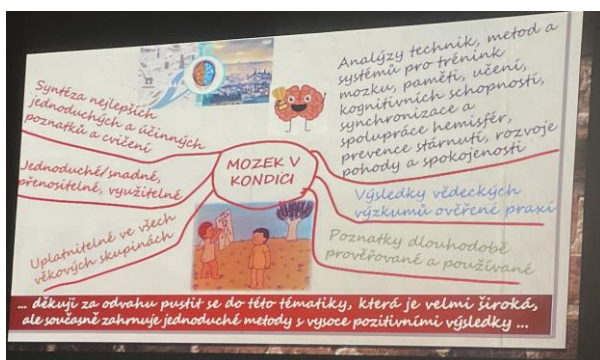 Syntéza nejlepších
jednoduchých a účinných
poznatků a cvičení
Jednoduché/snadné,
přenositelné, využitelné
Uplatnitelné ve všech
věkových skupinách
MOZEK V
KONDICI
Analýzy technik, metod a
systémů pro trénink
mozku, paměti, učení,
kognitivních schopností,
synchronizace a
spolupráce hemisfér,
prevence stárnutí, rozvoje
pohody a spokojenosti
Výsledky vědeckých
výzkumů ověřené praxí
Poznatky dlouhodobě
prověřované a používané
... děkuji za odvahu pustit se do této tématiky, která je velmi široká,
ale současně zahrnuje jednoduché metody s vysoce pozitivními výsledky ...